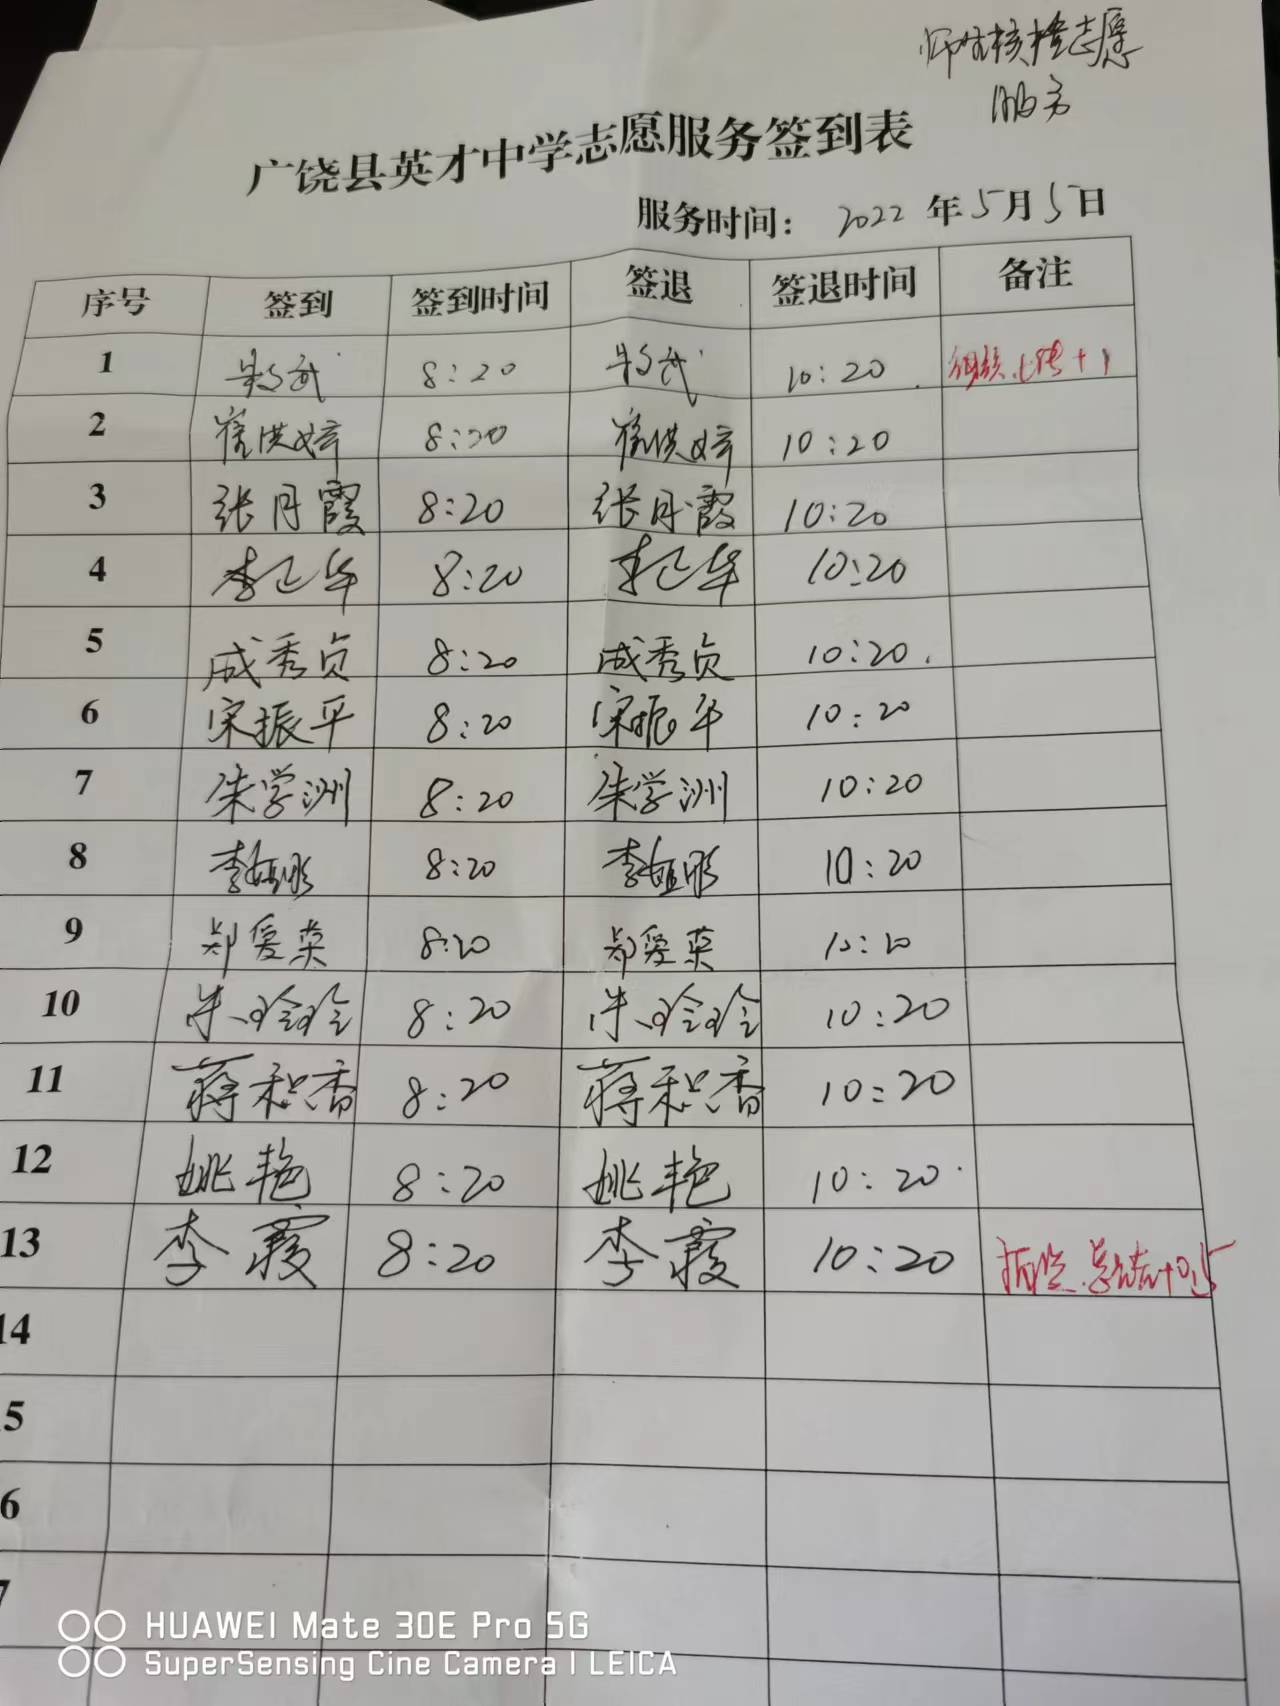 师生核检志愿
服务
广饶县英才中学志愿服务签到表
服务时间： 2022 年 5 月 5 日
序号 签到 签到时间 签退 签退时间 备注
1 8:20 10:20 +1
2 崔洪婷 8:20 崔洪婷 10:20
3 张月霞 8:20 张月霞 10:20
4 李卫华 8:20 李卫华 10:20
5 成秀贞 8:20 成秀贞 10:20.
6 宋振平 8:20 宋振平 10:20
7 朱学洲 8:20 朱学洲 10:20
8 8:20 10:20
9 郑爱荣 8:20 郑爱荣 10:20
10 朱玲玲 8:20 朱玲玲 10:20
11 蒋积香 8:20 蒋积香 10:20
12 姚艳 8:20 姚艳 10:20
13 李霞 8:20 李霞 10:20 总结+0.5
14
5
6
7
HUAWEI Mate 30E Pro 5G
SuperSensing Cine Camera | LEICA